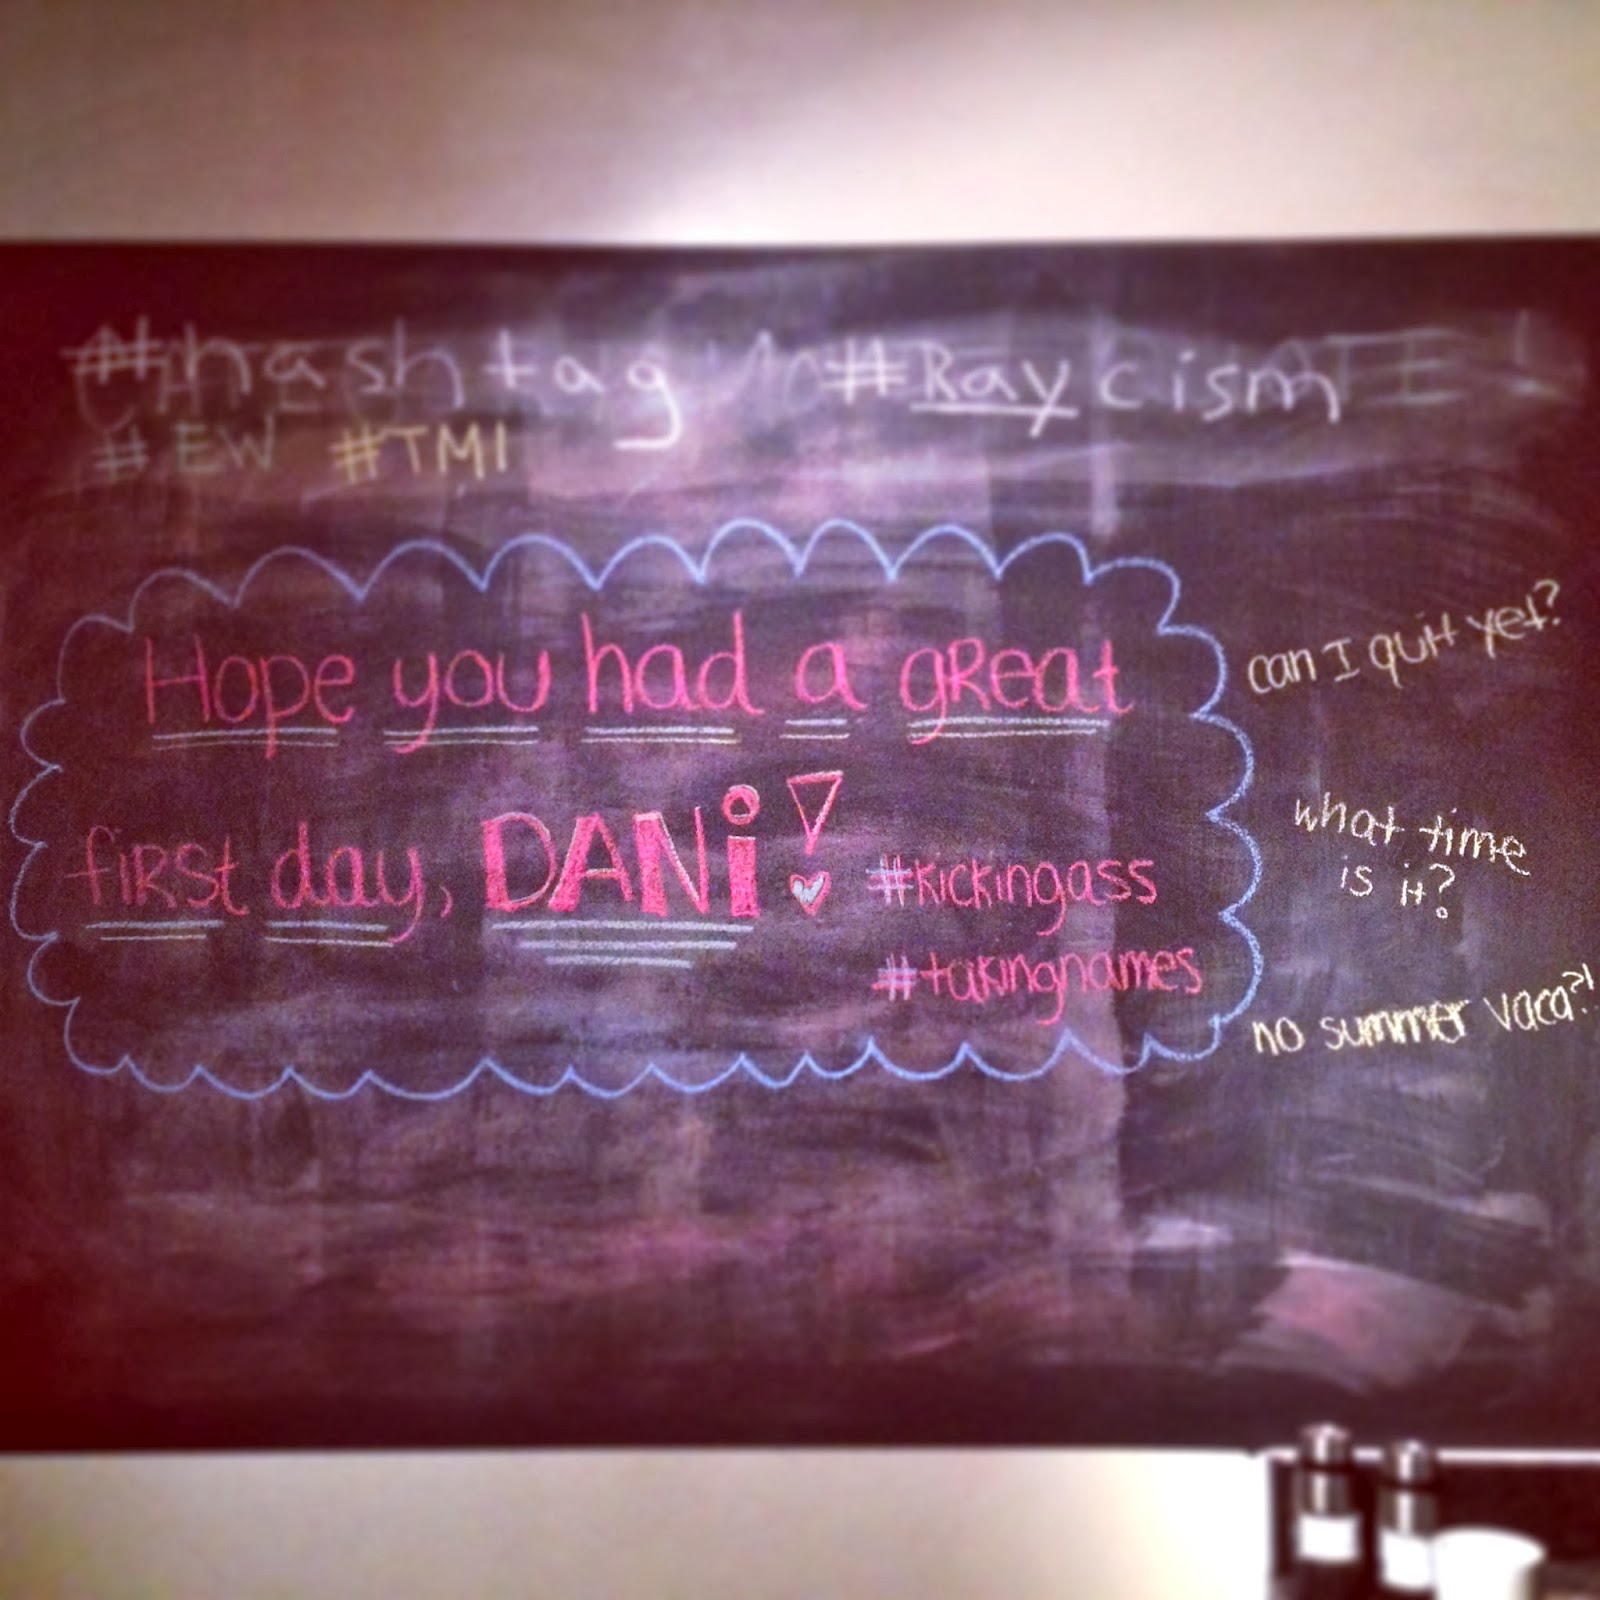 #hashtag #Raycism
#EW #TMI
Hope you had a gReat
fiRst day, DANi!
#kickingass
#takingnames
can I quit yet?
what time
is it?
no summer vaca?!